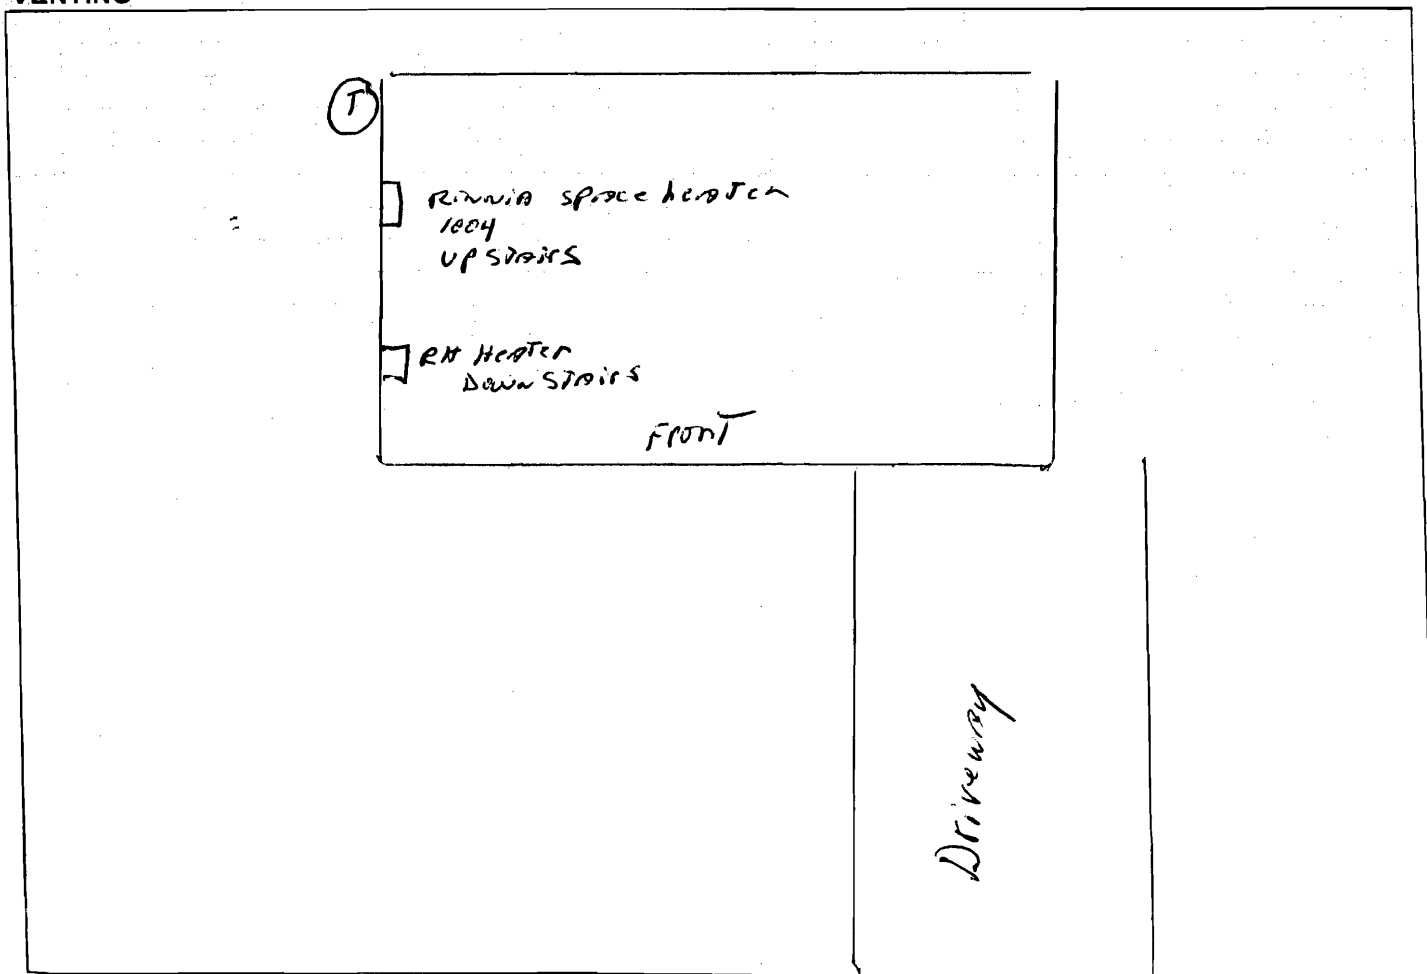 VENTING
T
RINNIA space heater
1004
UPSTAIRS
RH Heater
DOWNSTAIRS
FRONT
Driveway